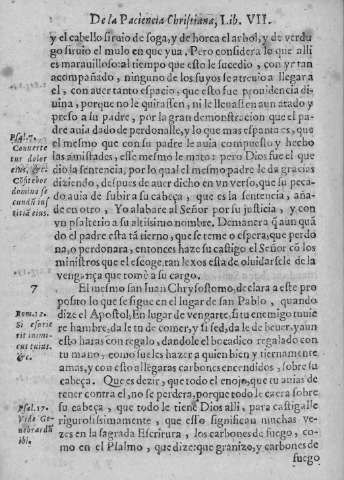 De la Paciencia Christiana, Lib. VII.
y el cabello siruio de soga, y de horca el arbol, y de verdu
go siruio el mulo en que yua. Pero considera lo que alli
es marauilloso: al tiempo que esto le sucedio, con yr tan
acompañado, ninguno de los suyos se atreuio a llegar a
el, con auer tanto espacio, que esto fue prouidencia di
uina, porque no le quitassen, ni le lleuassen aun atado y
preso a su padre, por la gran demonstracion que el pa
dre auia dado de perdonalle, y lo que mas espanta es, que
el mesmo que con su padre le auia compuesto y hecho
las amistades, esse mesmo le mato: pero Dios fue el que
dio la sentencia, por lo qual el mesmo padre le da gracias
diziendo, despues de auer dicho en vn verso, que su peca
do auia de subir a su cabeça, que es la sentencia, aña-
de en otro, Yo alabare al Señor por su justicia, y con
vn psalterio a su altissimo nombre. Demanera q̃ aun quã
do el padre esta tã tierno, que se teme o espera, que perdo
na, o perdonara, entonces haze su castigo el Señor cõ los
ministros que el escoge, tan lexos esta de oluidarsele de la
vengança que tomè a su cargo.
Psal. 7.
Conuerte
tur dolor
eius, &c.
Cõfitebor
domino se
cundũ ius
titiã eius.
7
El mesmo san Iuan Chrysostomo, declara a este pro
posito lo que se sigue en el lugar de san Pablo, quando
dize el Apostol, En lugar de vengarte, si tu enemigo tuuie
re hambre, da le tu de comer, y si sed, da le de beuer, y aun
esto haras con regalo, dandole el bocadico regalado con
tu mano, como sueles hazer a quien bien y tiernamente
amas, y con esto allegaras carbones encendidos, sobre su
cabeça. Que es dezir, que todo el enojo, que tu auias de
tener contra el, no se perdera, porque todo le caera sobre
su cabeça, que todo le tiene Dios alli, para castigalle
rigurosissimamente, que esso significan muchas ve-
zes en la sagrada Escritura, los carbones de fuego, co-
mo en el Psalmo, que dize: que granizo, y carbones de
fuego
Rom. 12.
Si esurie
rit inimi
cus tuus.
&c.
Psal. 17.
Vide Ge
nebrardũ
ibi.